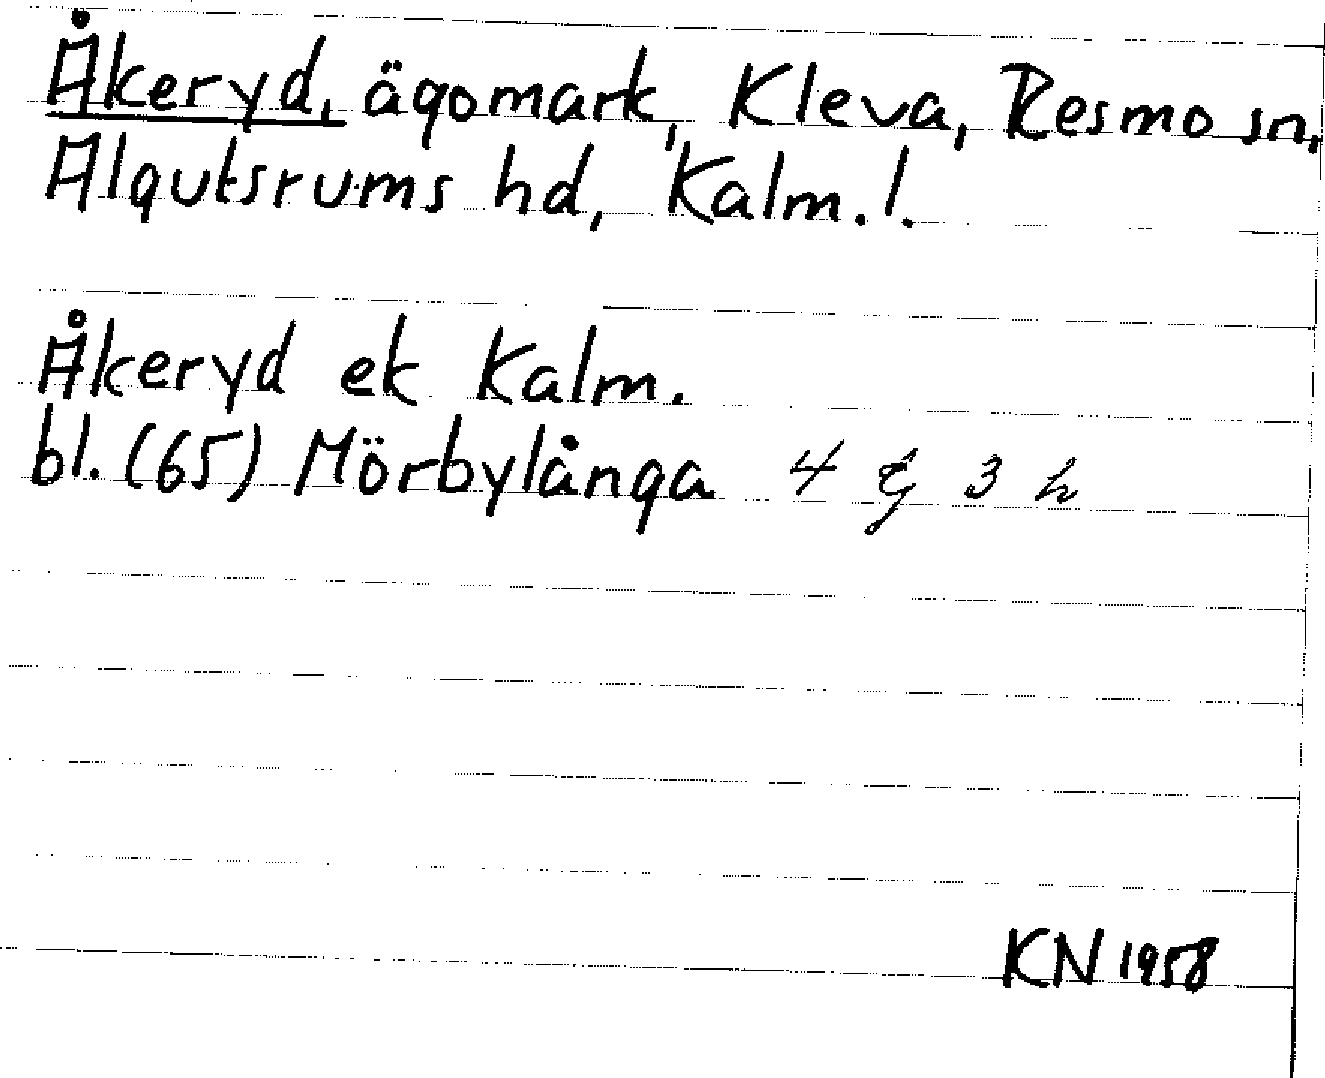 Åkeryd, ägomark, Kleva, Resmo sn,
Algutsrums hd, Kalm. l.
Åkeryd ek Kalm.
bl. (65) Mörbylånga 4 g 3 h
KN 1958